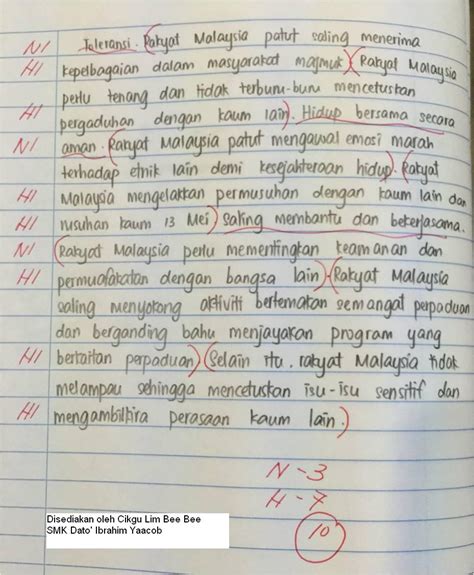 N1 Toleransi. (Rakyat Malaysia patut saling menerima
H1 kepelbagaian dalam masyarakat majmuk) (Rakyat Malaysia
perlu tenang dan tidak terburu-buru mencetuskan
H1 pergaduhan dengan kaum lain). Hidup bersama secara
N1 aman. (Rakyat Malaysia patut mengawal emosi marah
H1 terhadap etnik lain demi kesejahteraan hidup). (Rakyat
H1 Malaysia mengelakkan permusuhan dengan kaum lain dan
H1 rusuhan kaum 13 Mei) Saling membantu dan bekerjasama.
N1 (Rakyat Malaysia perlu mementingkan keamanan dan
H1 permuafakatan dengan bangsa lain). (Rakyat Malaysia
saling menyokong aktiviti bertemakan semangat perpaduan
dan berganding bahu menjayakan program yang
H1 berkaitan perpaduan) (Selain itu, rakyat Malaysia tidak
melampau sehingga mencetuskan isu-isu sensitif dan
H1 mengambilkira perasaan kaum lain.)
N - 3
H - 7
10
Disediakan oleh Cikgu Lim Bee Bee
SMK Dato' Ibrahim Yaacob